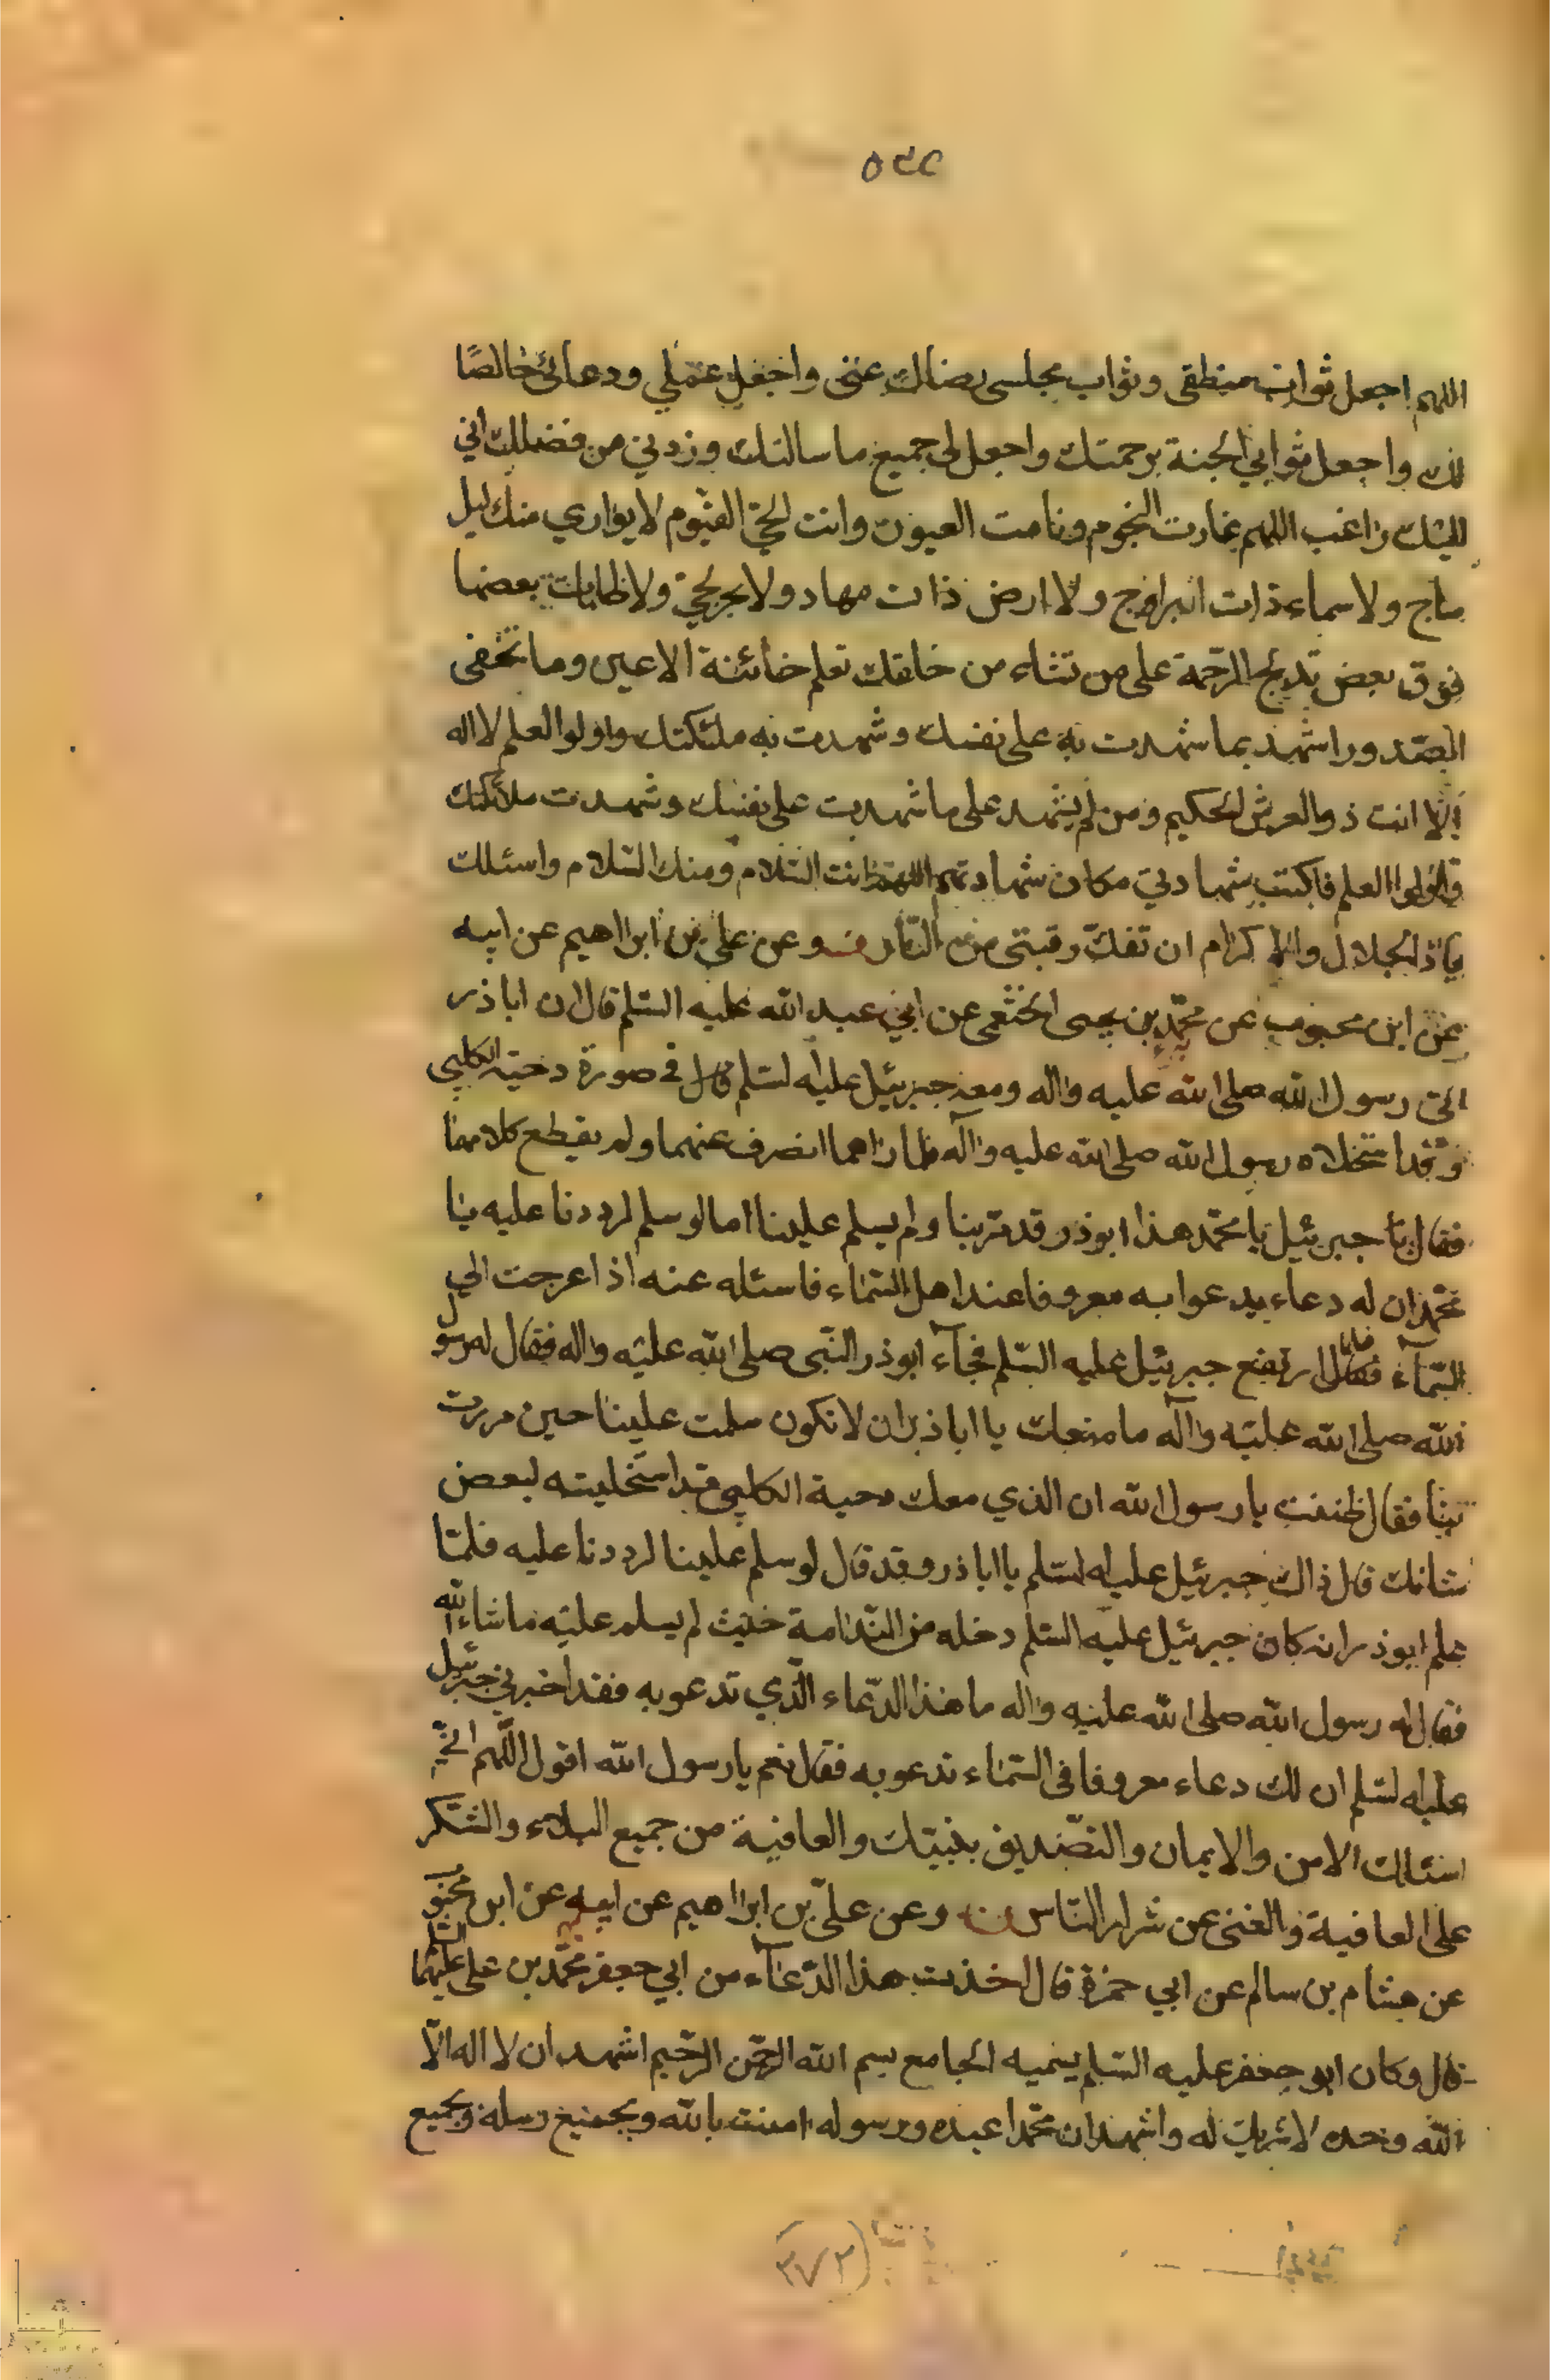 ٥٤٤
اللهم اجعل ثواب منطقي وثواب مجلسي رضاك عني واجعل عملي ودعائي خالصًا
لك واجعل ثوابي الجنة برحمتك واجعل لي جميع ما سالتك وزدني من فضلك اني
اليك راغب اللهم غارت النجوم ونامت العيون وانت الحي القيوم لا يواري منك ليل
ساج ولا سماء ذات ابراج ولا ارض ذات مهاد ولا بحر لجي ولا ظلمات بعضها
فوق بعض تدلج الرحمة على من تشاء من خلقك تعلم خائنة الاعين وما تخفى
الصدور اشهد بما شهدت به على نفسك وشهدت به ملئكتك واولوا العلم لا اله
الا انت ذو العرش الحكيم ومن لم يشهد على ما شهدت على نفسك وشهدت ملائكتك
واولوا العلم فاكتب شهادتي مكان شهادتهم اللهم انت السّلام ومنك السّلام واسئلك
يا ذا الجلال والاكرام ان تفكّ رقبتي من النّار وعن علي بن ابراهيم عن ابيه
عن ابن محبوب عن محمّد بن يحيى الخثعمي عن ابي عبد الله عليه السّلم قال ان اباذر
اتى رسول الله صلى الله عليه واله ومعه جبرئيل عليه السلم في صورة دحية الكلبي
وقد استخلاه رسول الله صلى الله عليه وآله فلما راهما انصرف عنهما ولم يقطع كلامهما
فقال جبرئيل يا محمّد هذا ابوذر قد مرّ بنا ولم يسلم علينا اما لو سلم لرددنا عليه يا
محمّد ان له دعاء يدعوا به معروفا عند اهل السّماء فاسئله عنه اذا عرجت الى
السّمآء فلما ارتفع جبرئيل عليه السّلم فجآء ابوذر النّبى صلى الله عليه واله فقال له رسول
الله صلى الله عليه وآله ما منعك يا اباذر ان لا تكون سلمت علينا حين مررت
بنا فقال ظننت يا رسول الله ان الذي معك دحية الكلبي قد استخليته لبعض
شانك قال ذاك جبرئيل عليه السّلم يا اباذر وقد قال لو سلم علينا لرددنا عليه فلمّا
علم ابوذر انه كان جبرئيل عليه السّلم دخله من النّدامة حيث لم يسلم عليه ما شاء الله
فقال له رسول الله صلى الله عليه واله ما هذا الدّعاء الّذي تدعو به فقد اخبرني جبرئيل
عليه السّلم ان لك دعاء معروفا في السّماء تدعو به فقال نعم يا رسول الله اقول اللّهم انّي
اسئلك الامن والايمان والتصّديق بنبيّك والعافية من جميع البلاء والشّكر
على العافية والغنى عن شرار النّاس وعن عليّ بن ابراهيم عن ابيه عن ابن محبوب
عن هشام بن سالم عن ابي حمزة قال اخذت هذا الدّعآء من ابي جعفر محمّد بن علي عليهما السلم
قال وكان ابو جعفر عليه السّلم يسميه الجامع بسم الله الرحمن الرّحيم اشهد ان لا اله الّا
الله وحده لا شريك له واشهد ان محمّدا عبده ورسوله امنت بالله وبجميع رسله وبجميع
(٣٧٣)